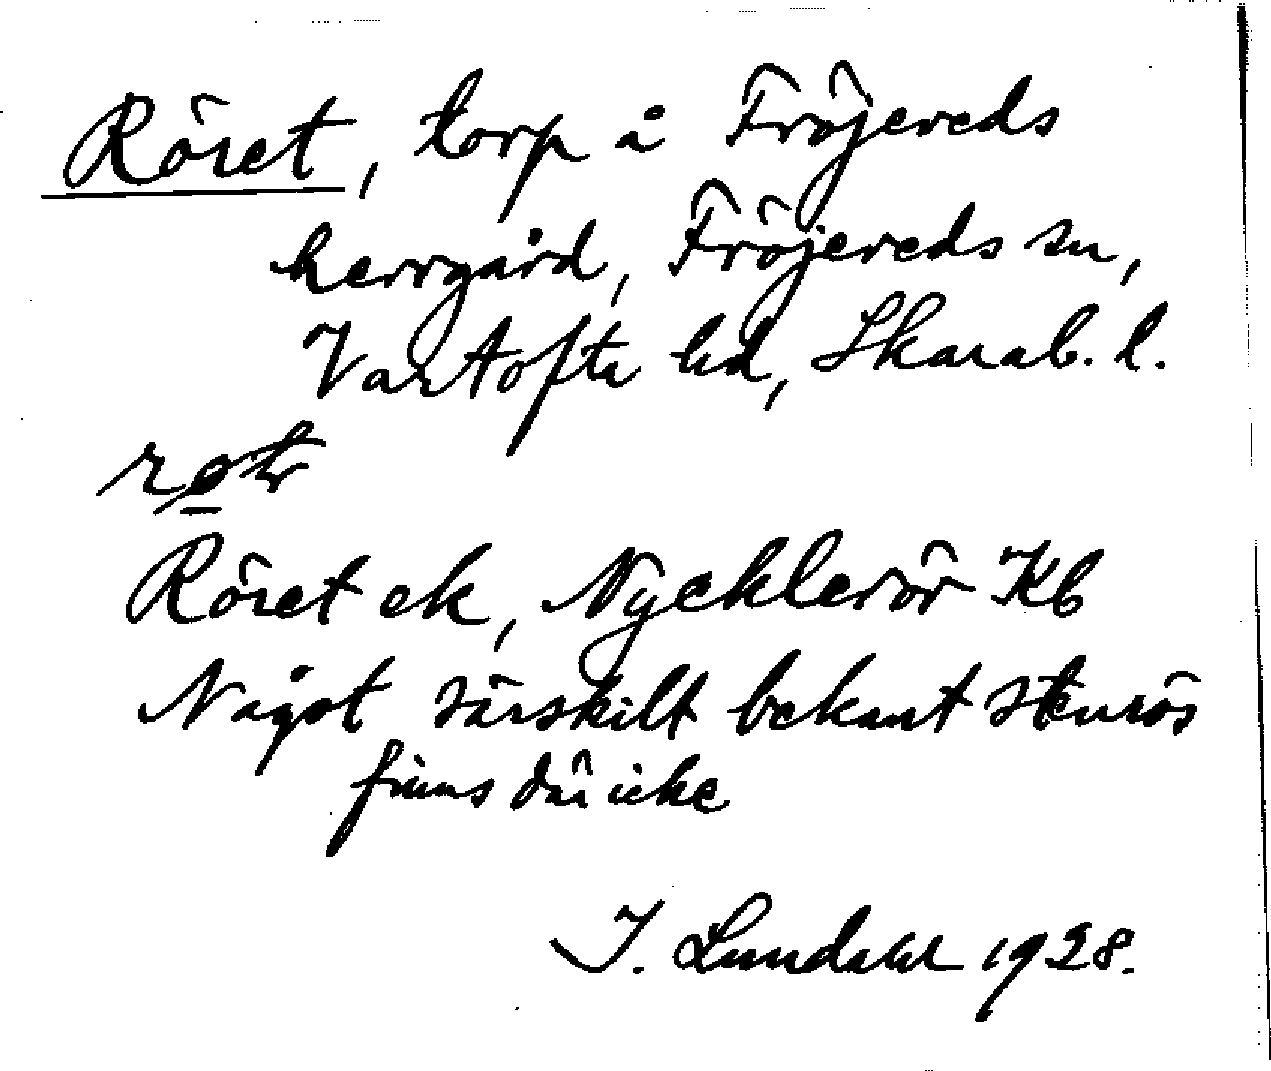 Röret, torp å Fröjereds
herrgård, Fröjereds sn,
Vartofta hd, Skarab. l.
Röret ek, Nycklerör Kb
Något särskilt bekant stenrös
finns där icke
I. Lundahl 1928.